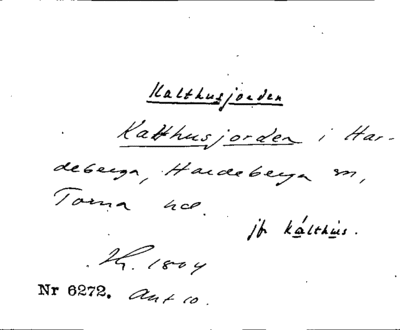 Kalthusjorden
Kalthusjorden i Har-
deberga, Hardeberga sn,
Torna hd.
jfr kálthùs.
1804
Nr 6272. Ant 10.